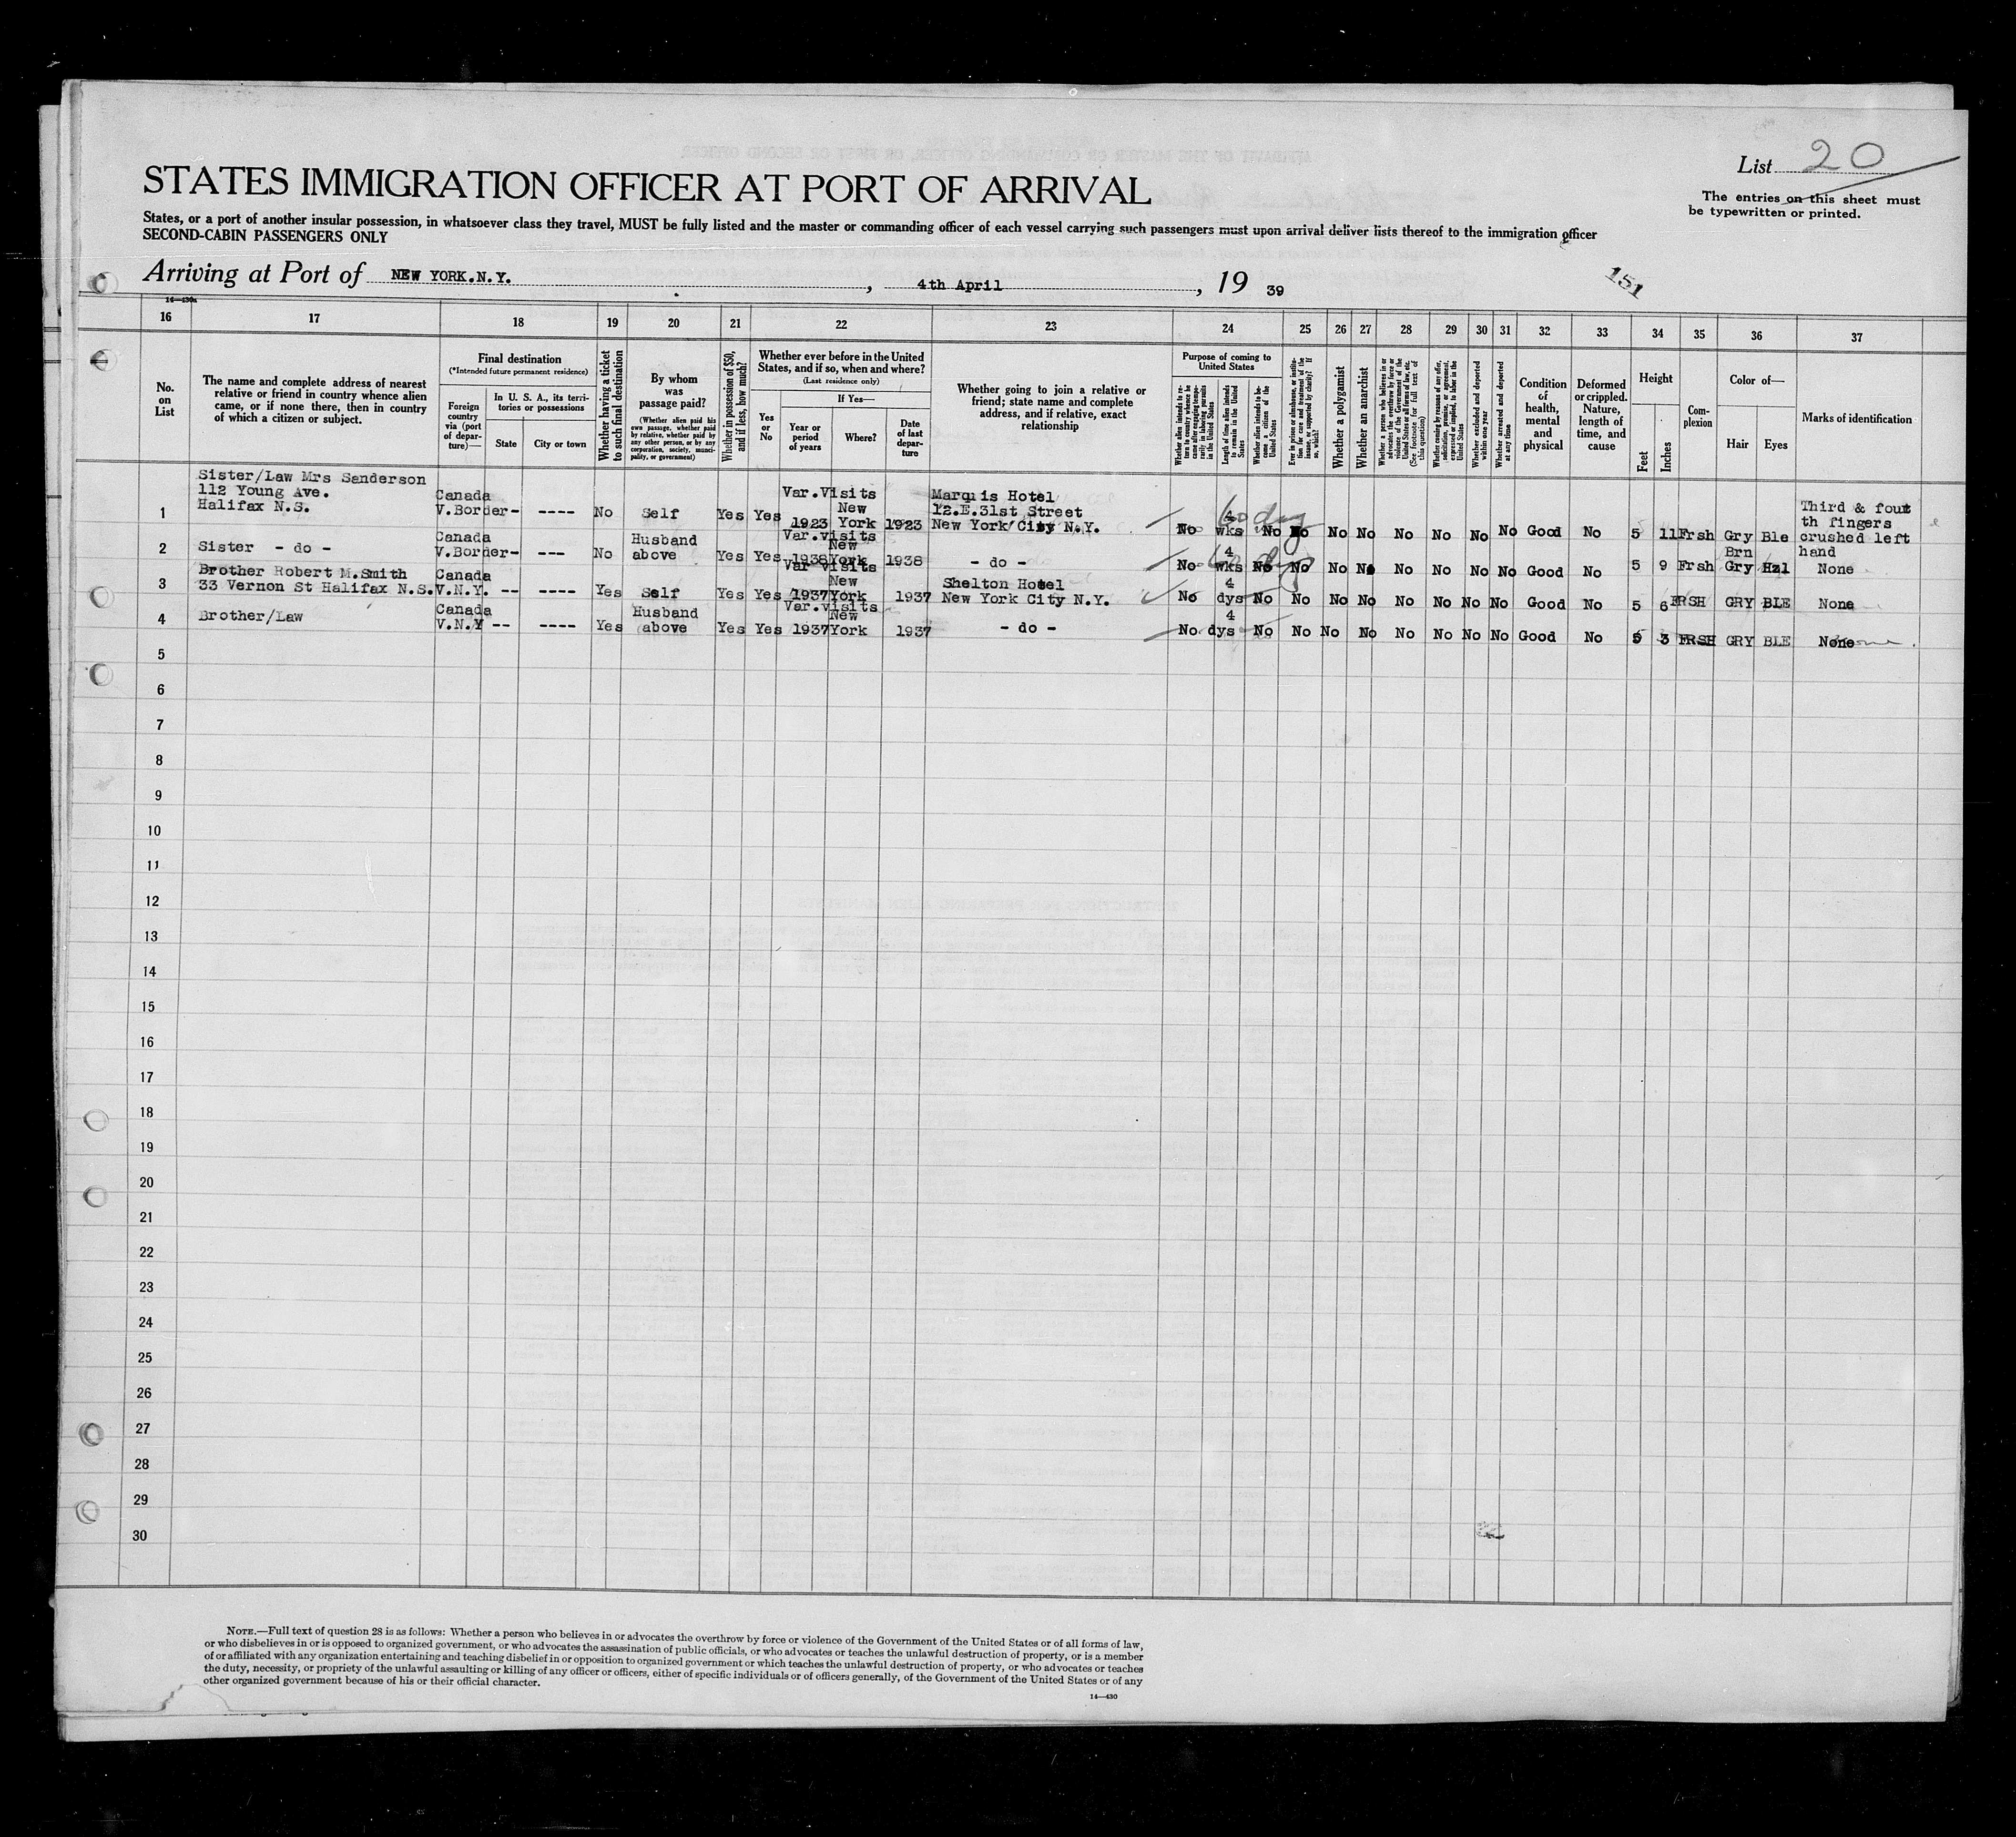 List 20
The entries on this sheet must
be typewritten or printed.
STATES IMMIGRATION OFFICER AT PORT OF ARRIVAL
States, or a port of another insular possession, in whatsoever class they travel, MUST be fully listed and the master or commanding officer of each vessel carrying such passengers must upon arrival deliver lists thereof to the immigration officer
SECOND-CABIN PASSENGERS ONLY
Arriving at Port of NEW YORK.N.Y. , 4th April , 19 39
151
14—430a
16 17 18 19 20 21 22 23 24 25 26 27 28 29 30 31 32 33 34 35 36 37
No.
on
List
The name and complete address of nearest
relative or friend in country whence alien
came, or if none there, then in country
of which a citizen or subject.
Final destination
(*Intended future permanent residence)
Foreign
country
via (port
of depar-
ture)—
In U. S. A., its terri-
tories or possessions
State
City or town
Whether having a ticket
to such final destination
By whom
was
passage paid?
(Whether alien paid his
own passage, whether paid
by relative, whether paid by
any other person, or by any
corporation, society, munici-
pality, or government)
Whether in possession of $50,
and if less, how much?
Whether ever before in the United
States, and if so, when and where?
(Last residence only)
Yes
or
No
If Yes—
Year or
period
of years
Where?
Date
of last
depar-
ture
Whether going to join a relative or
friend; state name and complete
address, and if relative, exact
relationship
Purpose of coming to
United States
Whether alien intends to re-
turn to country whence he
came after engaging tempo-
rarily in laboring pursuits
in the United States
Length of time alien intends
to remain in the United
States
Whether alien intends to be-
come a citizen of the
United States
Ever in prison or almshouse, or institu-
tion for care and treatment of the
insane, or supported by charity? If
so, which?
Whether a polygamist
Whether an anarchist
Whether a person who believes in or
advocates the overthrow by force or
violence of the Government of the
United States or all forms of law, etc.
(See footnote for full text of
this question)
Whether coming by reason of any offer,
solicitation, promise, or agreement,
expressed or implied, to labor in the
United States
Whether excluded and deported
within one year
Whether arrested and deported
at any time
Condition
of
health,
mental
and
physical
Deformed
or crippled.
Nature,
length of
time, and
cause
Height
Feet
Inches
Com-
plexion
Color of—
Hair
Eyes
Marks of identification
Sister/Law Mrs Sanderson
112 Young Ave.
Halifax N.S.
1 Canada
V.Border- ---- No Self Yes Yes Var.Visits
1923 New
York 1923 Marquis Hotel
12.E.31st Street
New York City N.Y. No 4
wks No No No No No No No No Good No 5 11 Frsh Gry Ble Third & fout
th fingers
crushed left
hand
60 days
2 Sister - do - Canada
V.Border- --- No Husband
above Yes Yes Var.visits
1938 New
York 1938 - do - No 4
wks No No No No No No No No Good No 5 9 Frsh Brn
Gry Hzl None
60 days
3 Brother Robert M.Smith
33 Vernon St Halifax N.S. Canada
V.N.Y. -- ---- Yes Self Yes Yes Var visits
1937 New
York 1937 Shelton Hotel
New York City N.Y. No 4
dys No No No No No No No No Good No 5 6 FRSH GRY BLE None
4 Brother/Law Canada
V.N.Y -- ---- Yes Husband
above Yes Yes Var.visits
1937 New
York 1937 - do - No 4
dys No No No No No No No No Good No 5 3 FRSH GRY BLE None
5
6
7
8
9
10
11
12
13
14
15
16
17
18
19
20
21
22
23
24
25
26
27
28
29
30
NOTE.—Full text of question 28 is as follows: Whether a person who believes in or advocates the overthrow by force or violence of the Government of the United States or of all forms of law,
or who disbelieves in or is opposed to organized government, or who advocates the assassination of public officials, or who advocates or teaches the unlawful destruction of property, or is a member
of or affiliated with any organization entertaining and teaching disbelief in or opposition to organized government or which teaches the unlawful destruction of property, or who advocates or teaches
the duty, necessity, or propriety of the unlawful assaulting or killing of any officer or officers, either of specific individuals or of officers generally, of the Government of the United States or of any
other organized government because of his or their official character.
14—430